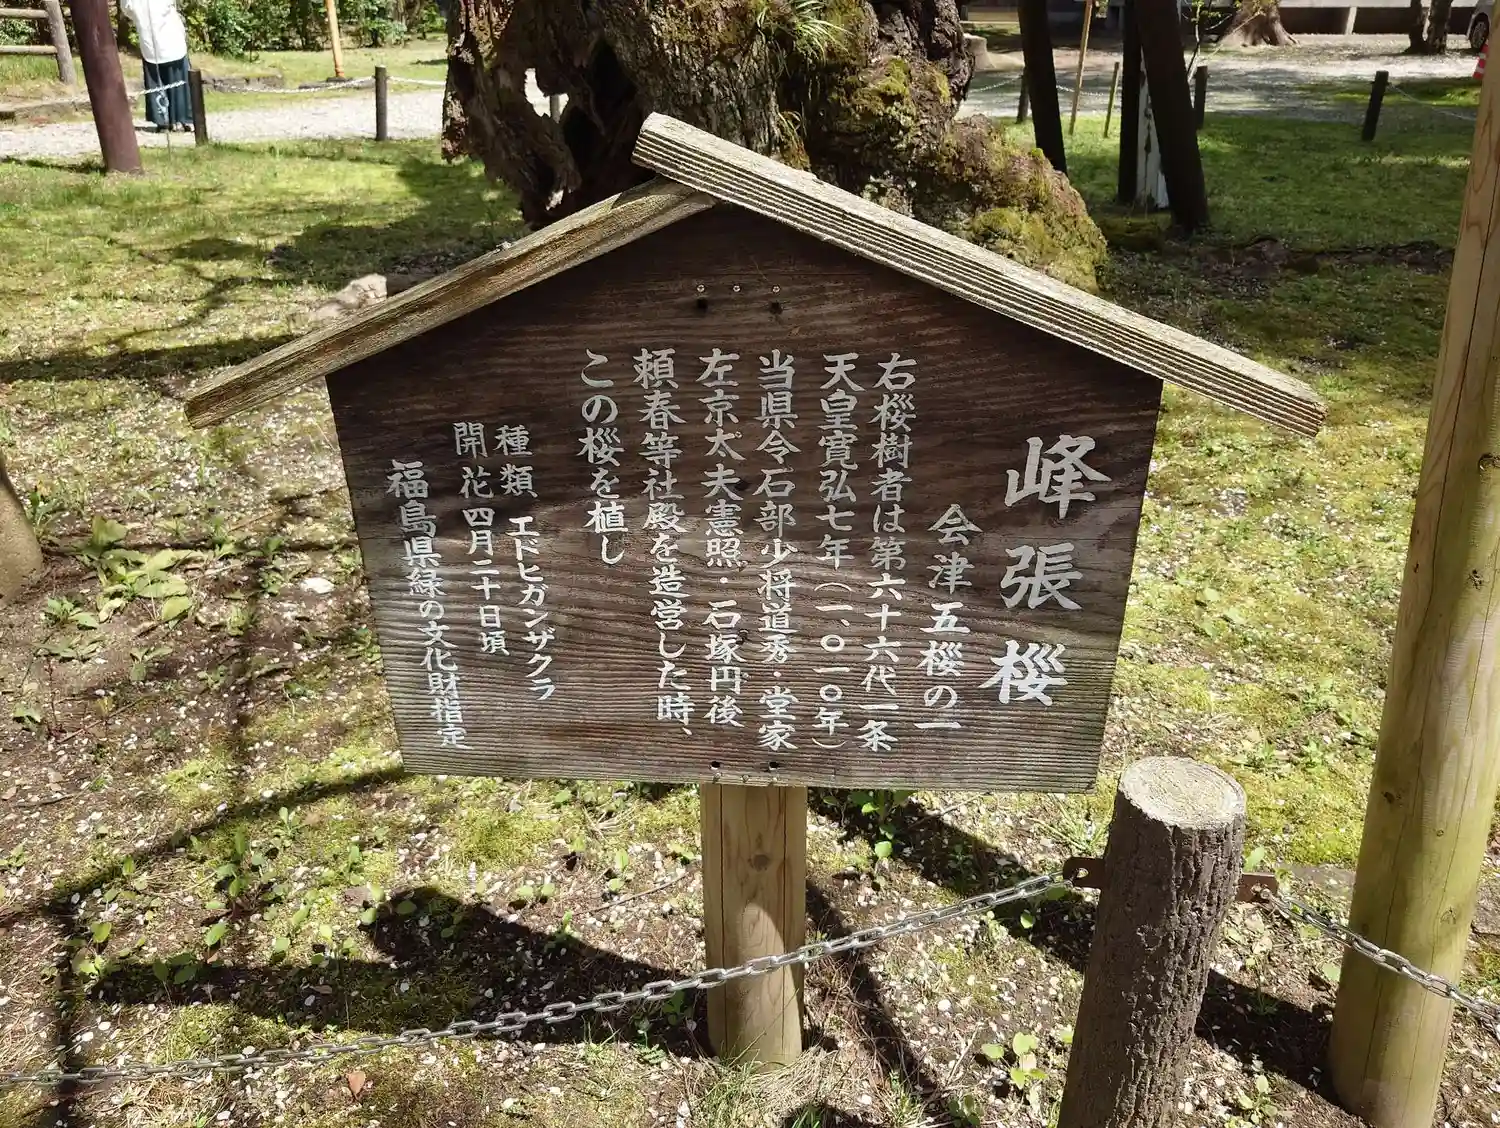 峰張桜
会津五桜の一
右桜樹者は第六十六代一条
天皇寛弘七年（一、〇一〇年）
当県令石部少将道秀・堂家
左京太夫憲照・石塚円後
頼春等社殿を造営した時、
この桜を植し
種類 エドヒガンザクラ
開花 四月二十日頃
福島県緑の文化財指定